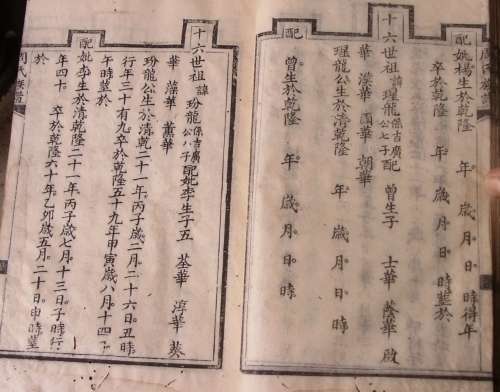 配妣楊生於乾隆 年 歲 月 日 時得年
卒於乾隆 年 歲 月 日 時塟於
十六世祖諱瑆龍係吉廣公七子配 曾生子 士華 蔭華 啟
華 國華 朝華
瑆龍公生於乾隆 年 歲 月 日 時
配 曾生於乾隆 年 歲 月 日 時
十六世祖諱玢龍係吉廣公八子配妣李生子五 荃華 淳華 葵
華 藻華 薰華
玢龍公生於清乾二十一年丙子歲二月二十六日丑時
行年三十有九卒於乾隆五十九年甲寅歲八月十四
午時塟於
配妣李生於清乾隆二十一年丙子歲七月十三日子時行
年四十 卒於乾隆六十年乙卯歲五月二十日申時塟
於
周氏族譜